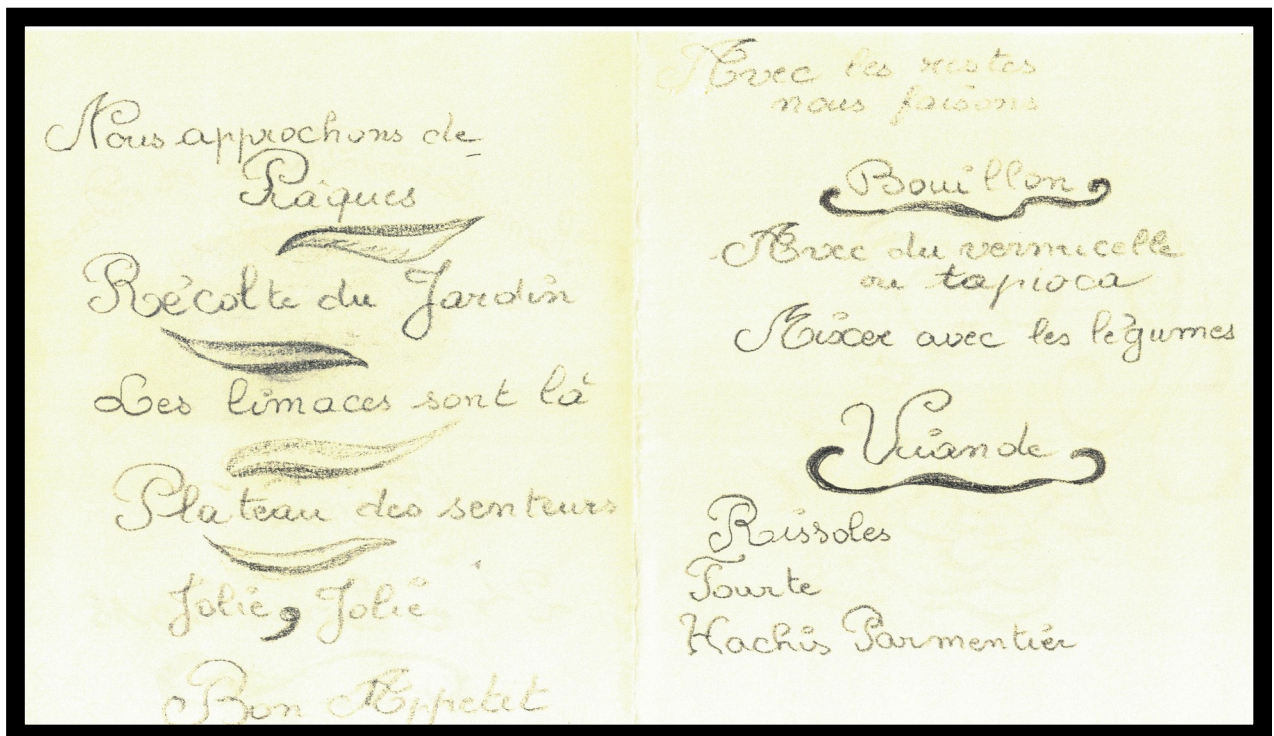 Nous approchons de
Pâques
Récolte du Jardin
Les limaces sont là
Plateau des senteurs
Jolie, Jolie
Bon Appetit
Avec les restes
nous faisons
Bouillon
Avec du vermicelle
ou tapioca
Mixer avec les légumes
Viande
Rissoles
Tourte
Hachis Parmentier